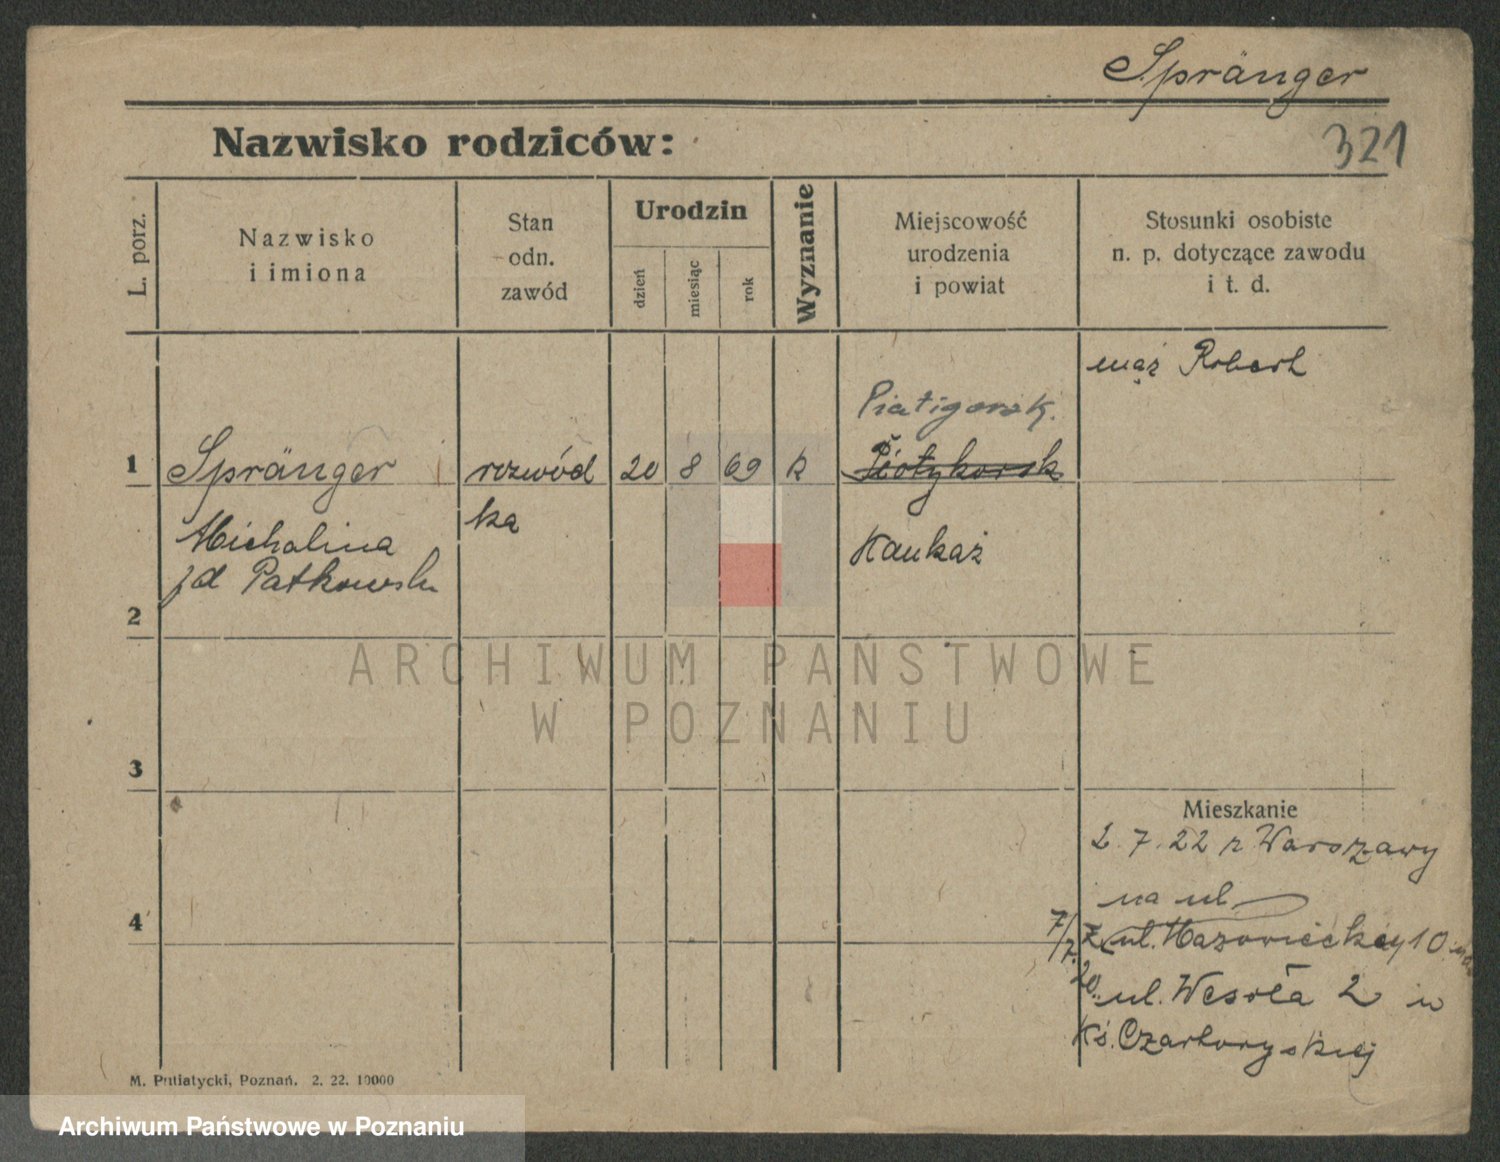 Spränger
Nazwisko rodziców:
321
L. porz.
Nazwisko
i imiona
Stan
odn.
zawód
Urodzin
dzień
miesiąc
rok
Wyznanie
Miejscowość
urodzenia
i powiat
Stosunki osobiste
n. p. dotyczące zawodu
i t. d.
mąż Robert
Piatigorsk.
1 Spränger rozwód 20 8 69 k Piotykorsk
ka
Michalina
Kaukaz
2
ARCHIWUM PAŃSTWOWE
W POZNANIU
3
Mieszkanie
2.7.22 z Warszawy
na ul
4
7/7. z ul. Mazowieckiej 10
20. ul. Wesoła 2 u
Kś. Czartoryskiej
M. Putiatycki, Poznań. 2. 22. 10000
Archiwum Państwowe w Poznaniu